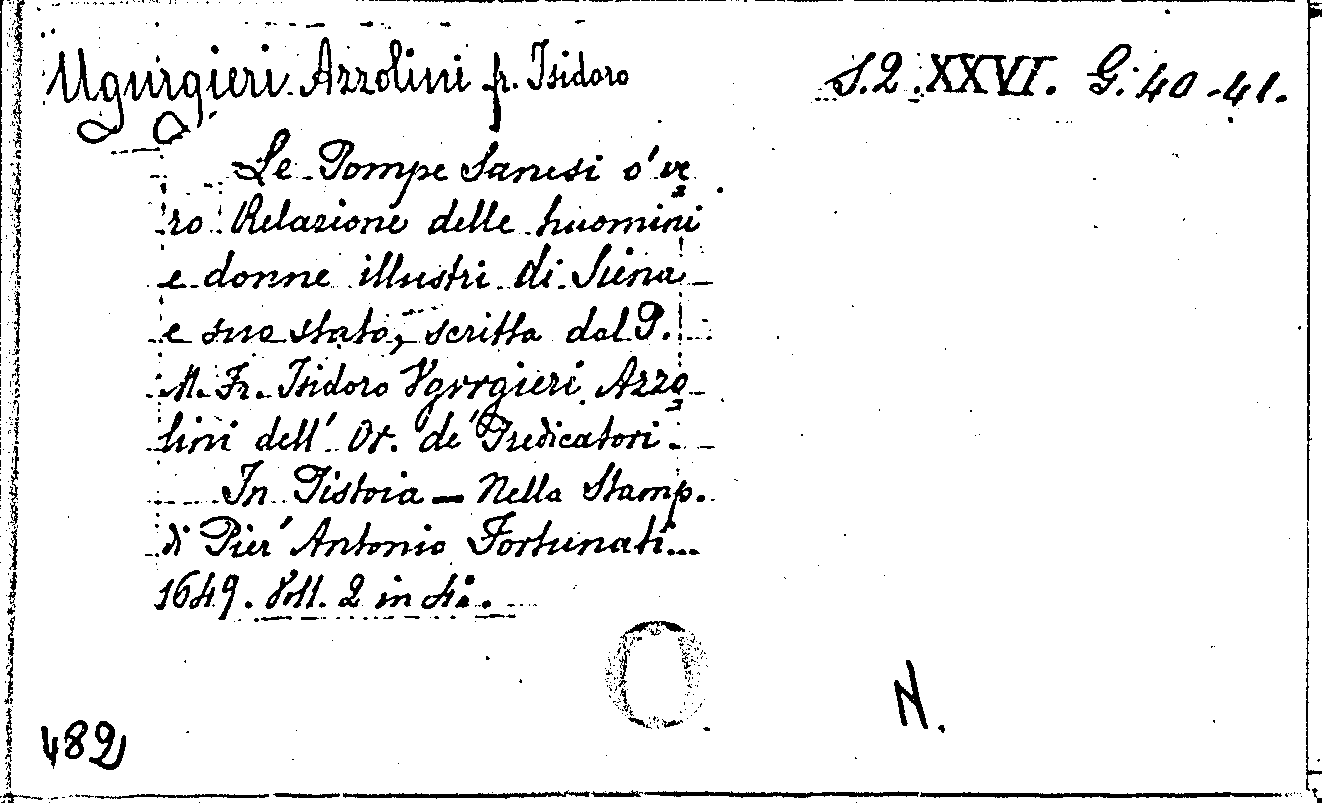 Ugurgieri Azzolini fr. Isidoro
S.2.XXVI. G. 40-41.
Le Pompe Sanesi o' ve
ro Relazione delle huomini
e donne illustri di Siena
e suo stato, scritta dal P.
M. Fr. Isidoro Vgvrgieri Azzo
lini dell' Or. de' Predicatori.
In Pistoia - Nella Stamp.
di Pier' Antonio Fortunati...
1649. Voll. 2 in 4º.
N.
482